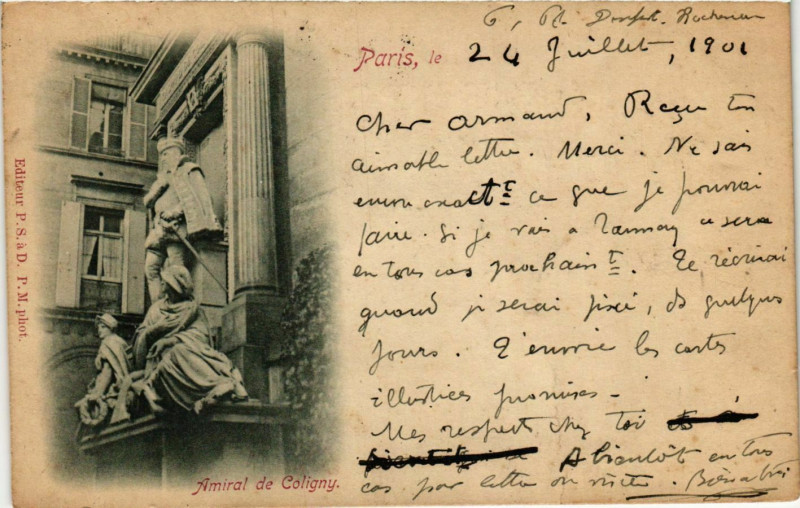 6, Pl. Denfert-Rochereau
Paris, le 24 Juillet, 1901
Cher Armand, Reçu ton
aimable lettre. Merci. Ne sais
encore exactt ce que je pourrai
faire. Si je vais à Lannoy ce sera
en tous cas prochaint. Te récrirai
quand je serai fixé, ds quelques
jours. T'envoie les cartes
illustrées promises.
Mes respects chez toi
A bientôt en tous
cas par lettre ou visite.
Amiral de Coligny.
Editeur P. S. à D. P. M. phot.